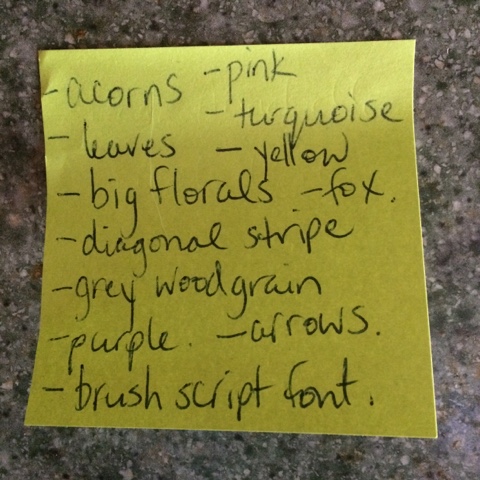 -acorns -pink
-turquoise
-leaves -yellow
-big florals -fox.
-diagonal stripe
-grey woodgrain
-purple. -arrows.
-brush script font.